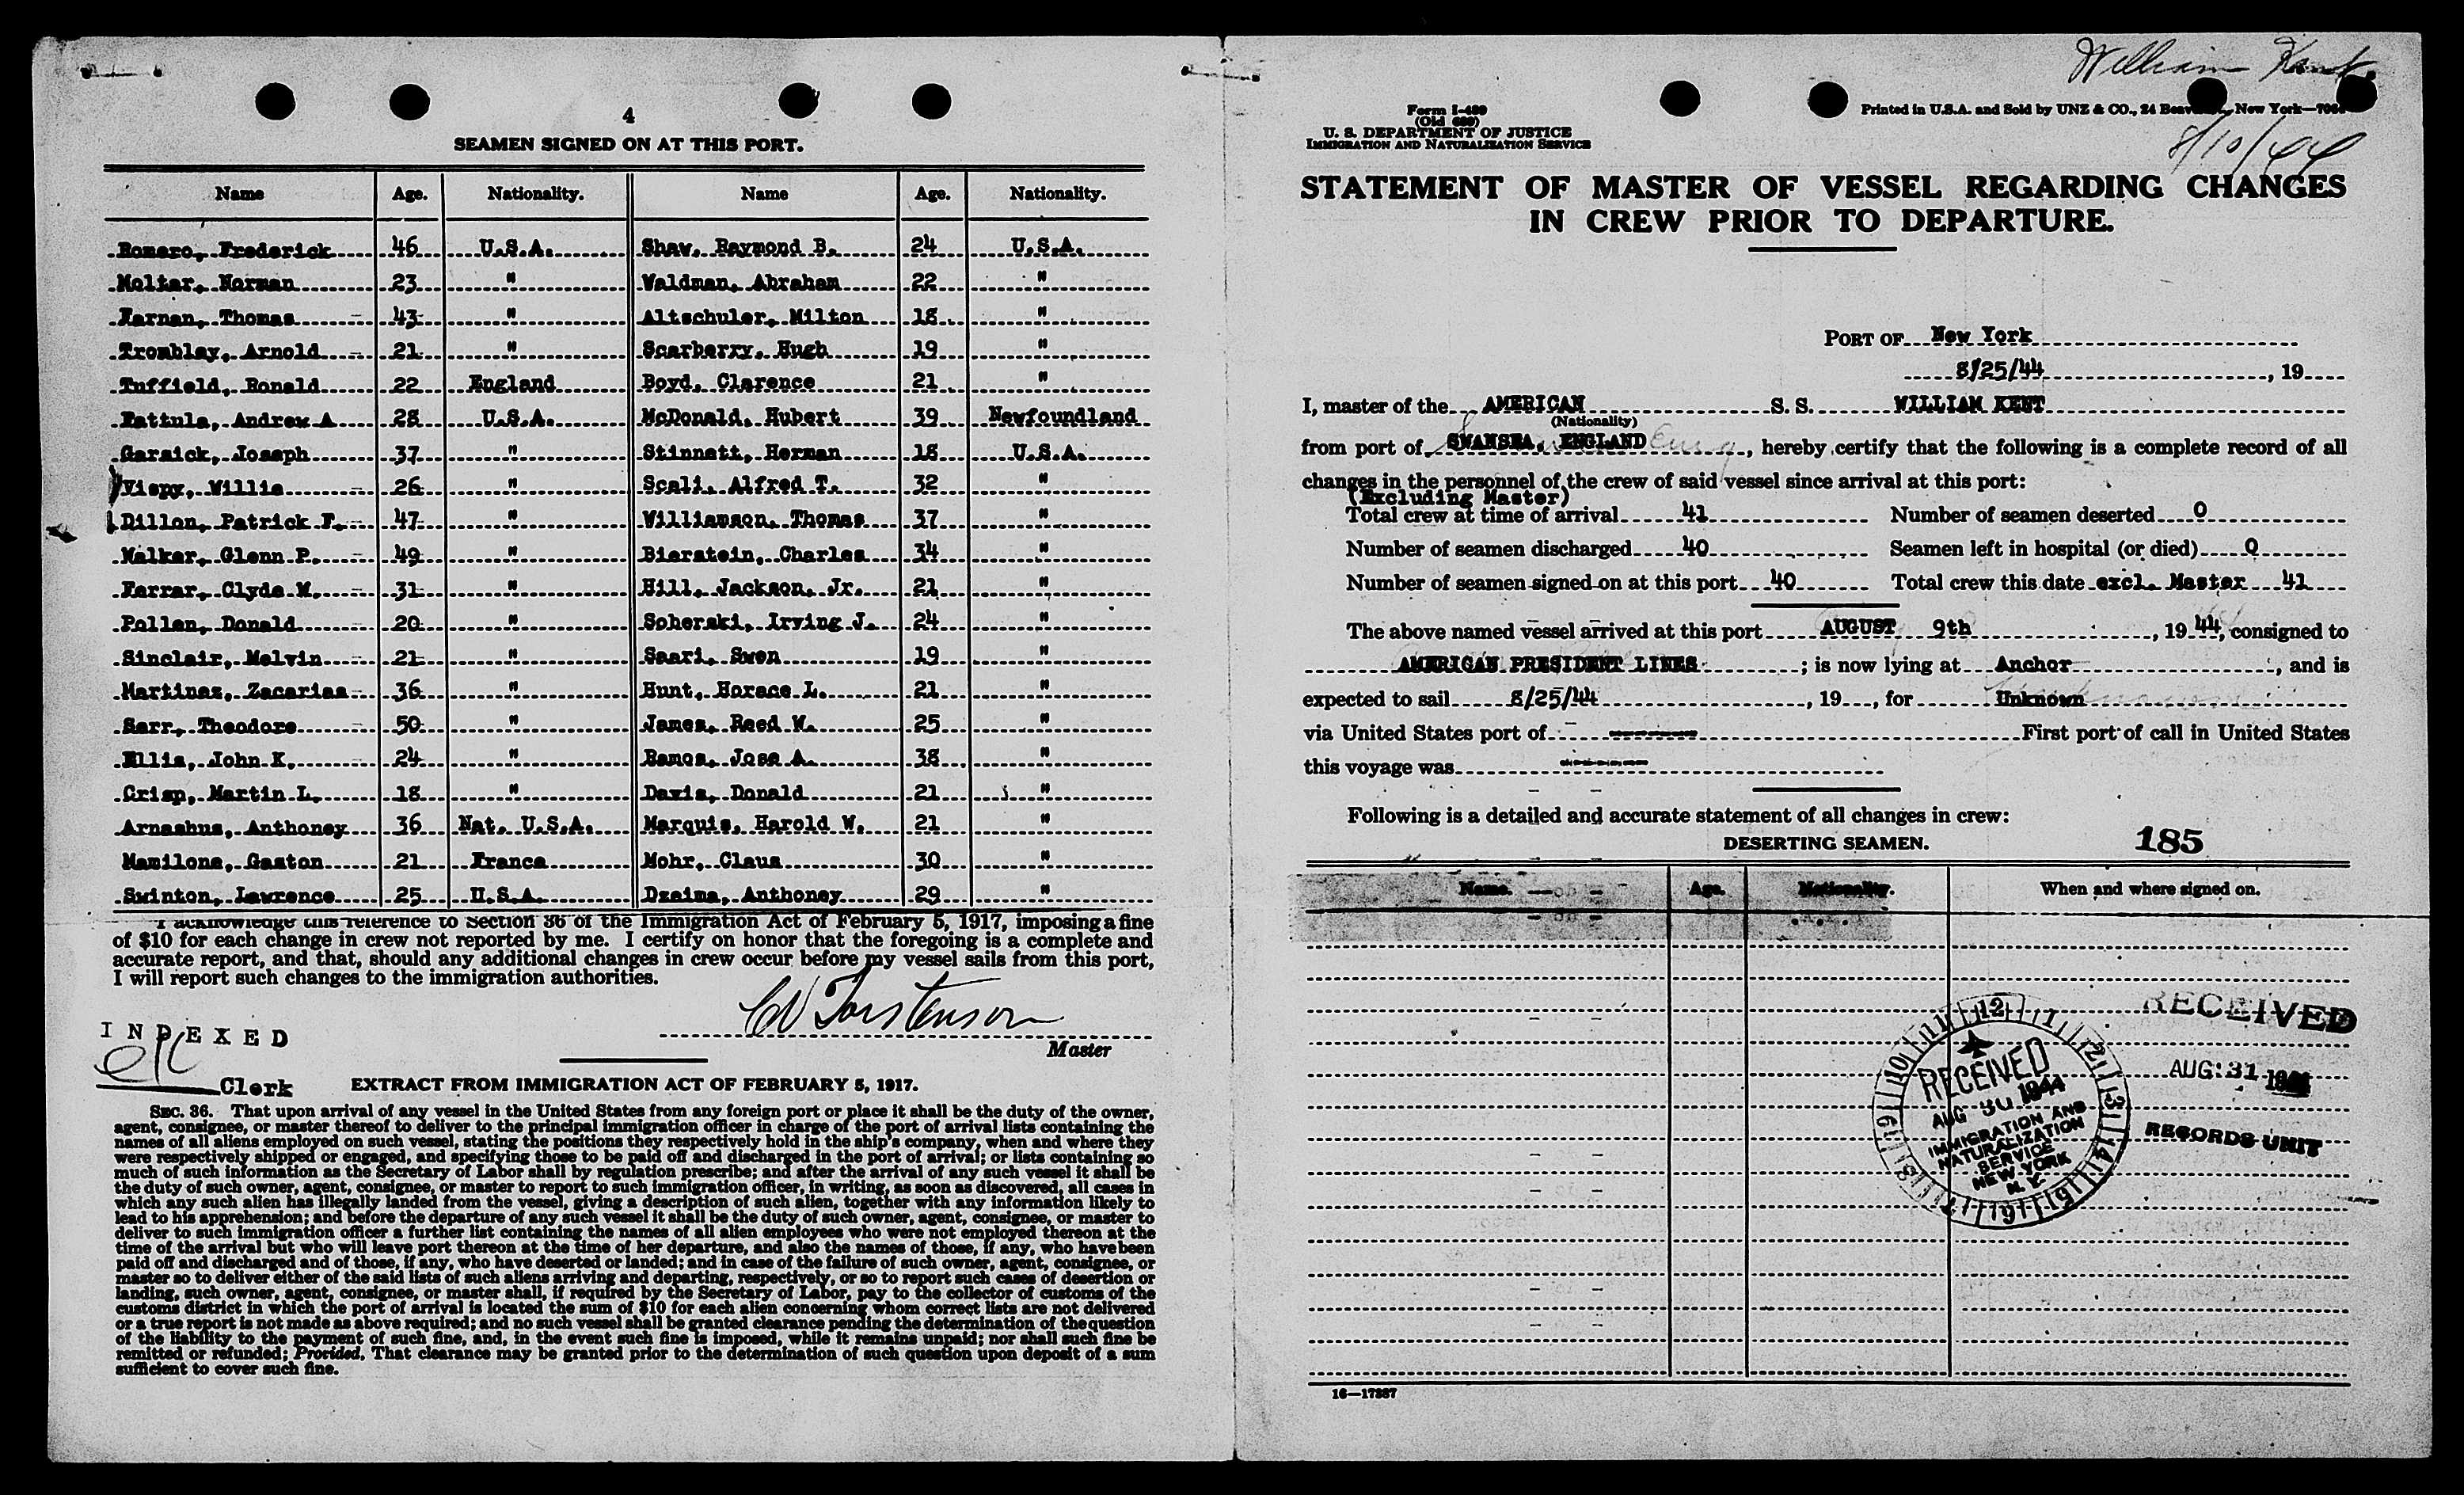 4
SEAMEN SIGNED ON AT THIS PORT.
Name Age. Nationality. Name Age. Nationality.
Romero, Frederick 46 U.S.A. Shaw, Raymond B. 24 U.S.A.
Molter, Norman 23 " Waldman, Abraham 22 "
Farnan, Thomas 43 " Altschuler, Milton 18 "
Tromblay, Arnold 21 " Scarberry, Hugh 19 "
Tuffield, Ronald 22 England Boyd, Clarence 21 "
Rattula, Andrew A 28 U.S.A. McDonald, Hubert 39 Newfoundland
Garsick, Joseph 37 " Stinnett, Herman 18 U.S.A.
Vispy, Willie 26 " Scali, Alfred T. 32 "
Dillon, Patrick F. 47 " Williamson, Thomas 37 "
Walker, Glenn P. 49 " Bierstein, Charles 34 "
Farrar, Clyde W. 31 " Hill, Jackson, Jr. 21 "
Pollen, Donald 20 " Soherski, Irving J. 24 "
Sinclair, Melvin 21 " Saari, Swen 19 "
Martinez, Zacarias 36 " Hunt, Horace L. 21 "
Sarr, Theodore 50 " James, Reed W. 25 "
Ellis, John K. 24 " Ramos, Jose A. 38 "
Crisp, Martin L. 18 " Davis, Donald 21 "
Arnashus, Anthoney 36 Nat. U.S.A. Marquis, Harold W. 21 "
Mamilona, Gaston 21 France Mohr, Claus 30 "
Swinton, Lawrence 25 U.S.A. Dzaima, Anthoney 29 "
I acknowledge this reference to Section 36 of the Immigration Act of February 5, 1917, imposing a fine
of $10 for each change in crew not reported by me. I certify on honor that the foregoing is a complete and
accurate report, and that, should any additional changes in crew occur before my vessel sails from this port,
I will report such changes to the immigration authorities.
Torstenson
Master
INDEXED
Clerk
EXTRACT FROM IMMIGRATION ACT OF FEBRUARY 5, 1917.
SEC. 36. That upon arrival of any vessel in the United States from any foreign port or place it shall be the duty of the owner,
agent, consignee, or master thereof to deliver to the principal immigration officer in charge of the port of arrival lists containing the
names of all aliens employed on such vessel, stating the positions they respectively hold in the ship's company, when and where they
were respectively shipped or engaged, and specifying those to be paid off and discharged in the port of arrival; or lists containing so
much of such information as the Secretary of Labor shall by regulation prescribe; and after the arrival of any such vessel it shall be
the duty of such owner, agent, consignee, or master to report to such immigration officer, in writing, as soon as discovered, all cases in
which any such alien has illegally landed from the vessel, giving a description of such alien, together with any information likely to
lead to his apprehension; and before the departure of any such vessel it shall be the duty of such owner, agent, consignee, or master to
deliver to such immigration officer a further list containing the names of all alien employees who were not employed thereon at the
time of the arrival but who will leave port thereon at the time of her departure, and also the names of those, if any, who have been
paid off and discharged and of those, if any, who have deserted or landed; and in case of the failure of such owner, agent, consignee, or
master so to deliver either of the said lists of such aliens arriving and departing, respectively, or so to report such cases of desertion or
landing, such owner, agent, consignee, or master shall, if required by the Secretary of Labor, pay to the collector of customs of the
customs district in which the port of arrival is located the sum of $10 for each alien concerning whom correct lists are not delivered
or a true report is not made as above required; and no such vessel shall be granted clearance pending the determination of the question
of the liability to the payment of such fine, and, in the event such fine is imposed, while it remains unpaid; nor shall such fine be
remitted or refunded; Provided, That clearance may be granted prior to the determination of such question upon deposit of a sum
sufficient to cover such fine.
William Kent
Form I-489
(Old 689)
U. S. DEPARTMENT OF JUSTICE
IMMIGRATION AND NATURALIZATION SERVICE
Printed in U.S.A. and Sold by UNZ & CO., 24 New York
8/10/44
STATEMENT OF MASTER OF VESSEL REGARDING CHANGES
IN CREW PRIOR TO DEPARTURE.
PORT OF New York
8/25/44, 19
I, master of the AMERICAN S. S. WILLIAM KENT
(Nationality)
from port of SWANSEA, ENGLAND, hereby certify that the following is a complete record of all
changes in the personnel of the crew of said vessel since arrival at this port:
(Excluding Master)
Total crew at time of arrival 41 Number of seamen deserted 0
Number of seamen discharged 40 Seamen left in hospital (or died) 0
Number of seamen signed on at this port 40 Total crew this date excl. Master 41
The above named vessel arrived at this port AUGUST 9th, 1944, consigned to
AMERICAN PRESIDENT LINES; is now lying at Anchor, and is
expected to sail 8/25/44, 19, for Unknown
via United States port of First port of call in United States
this voyage was
Following is a detailed and accurate statement of all changes in crew:
DESERTING SEAMEN. 185
Name. Age. Nationality. When and where signed on.
RECEIVED
AUG 31 1944
RECORDS UNIT
12 1 2 3 4 5 6 7 8 9 10 11
RECEIVED
AUG 30 1944
IMMIGRATION AND
NATURALIZATION
SERVICE
NEW YORK
N. Y.
16—17887